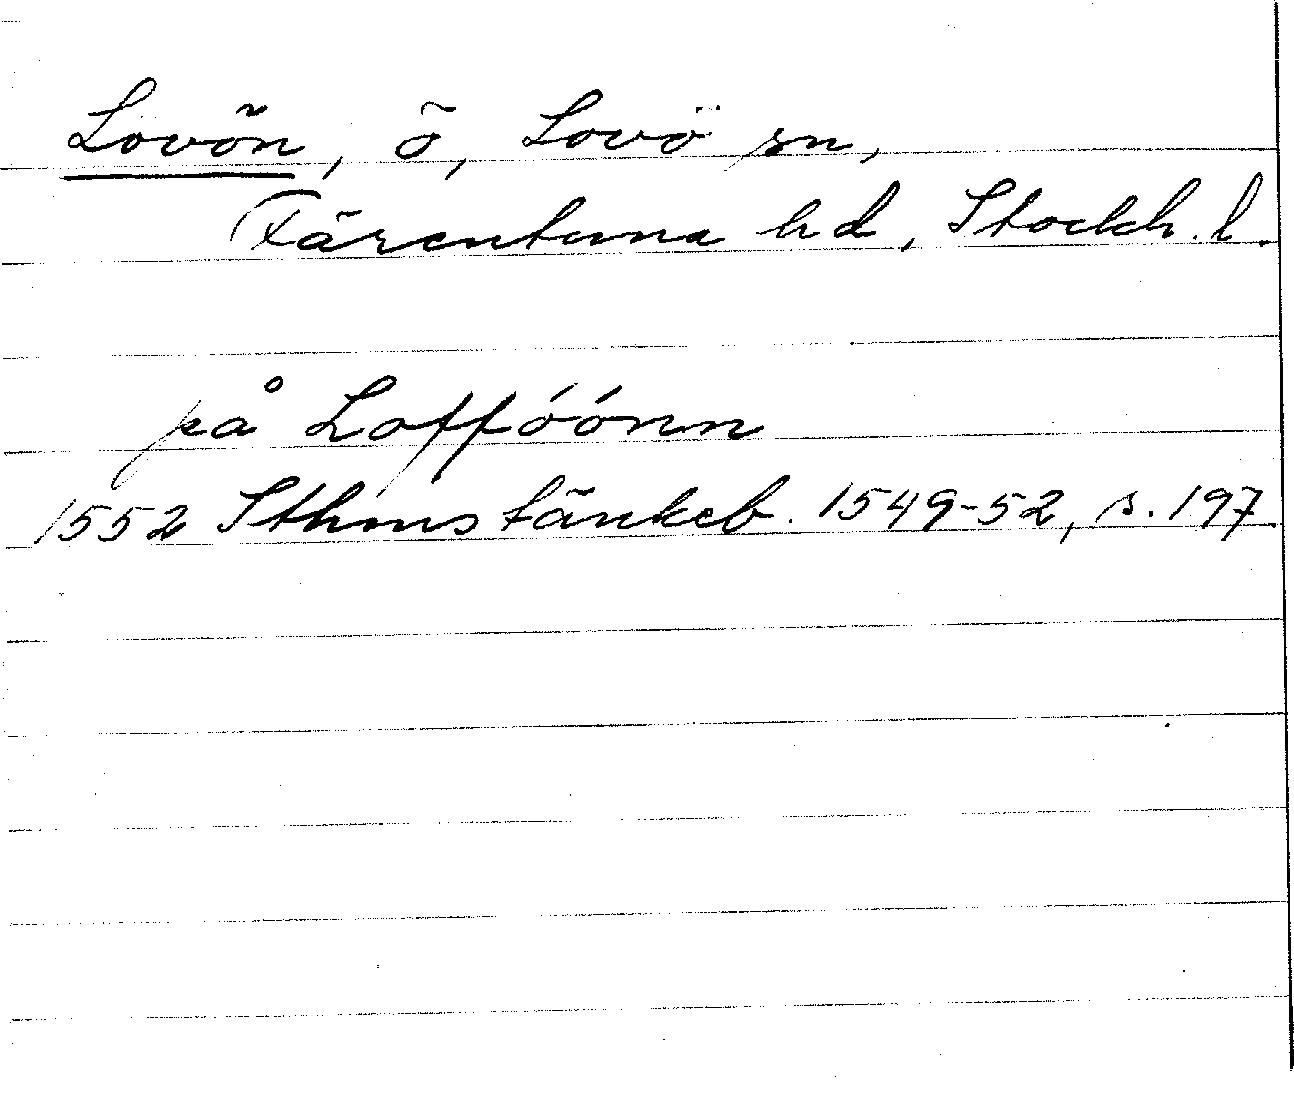 Lovön, ö, Lovö sn,
Färentuna hd, Stockh. l.
på Loffóónn
1552 Sthms tänkeb. 1549-52, s. 197